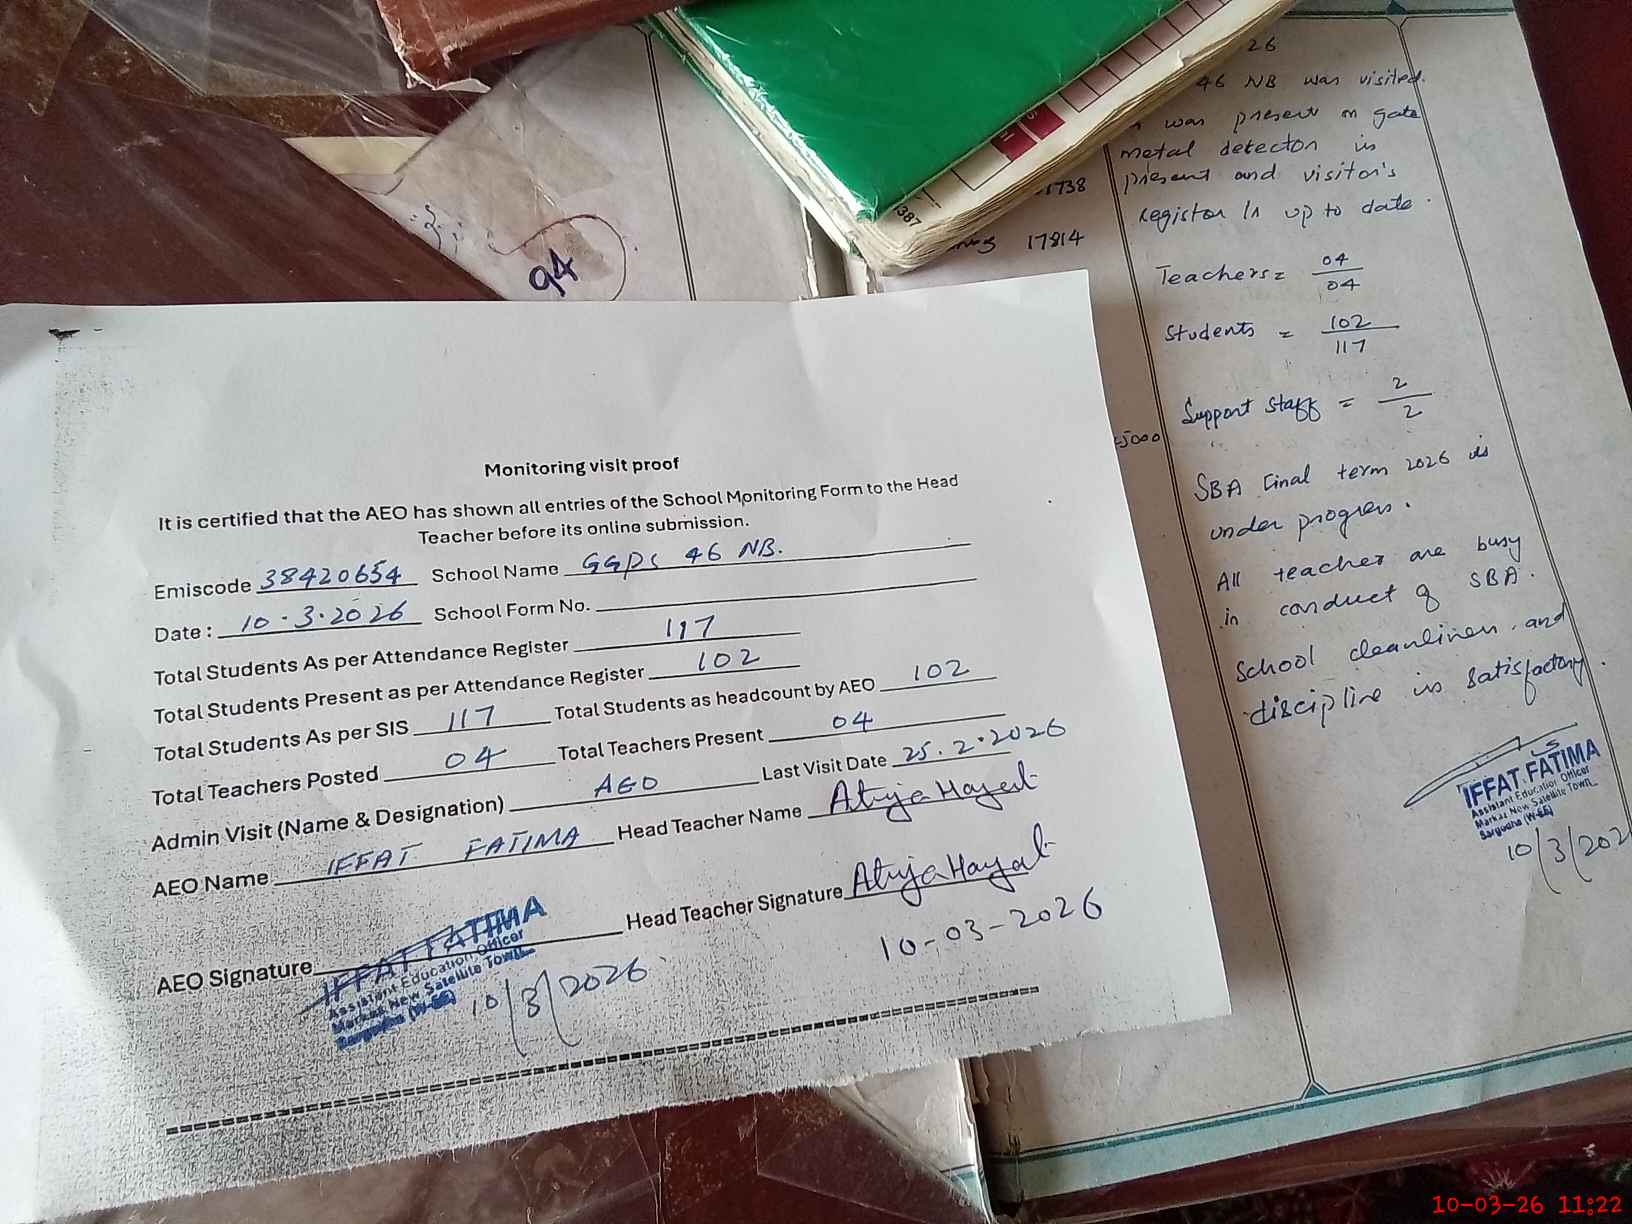 Monitoring visit proof
It is certified that the AEO has shown all entries of the School Monitoring Form to the Head
Teacher before its online submission.
Emiscode 38420654 School Name GGPS 46 NB.
Date : 10.3.2026 School Form No.
Total Students As per Attendance Register 117
Total Students Present as per Attendance Register 102
Total Students As per SIS 117 Total Students as headcount by AEO 102
Total Teachers Posted 04 Total Teachers Present 04
Admin Visit (Name & Designation) AEO Last Visit Date 25.2.2026
AEO Name IFFAT FATIMA Head Teacher Name Atyja Hayat
AEO Signature Head Teacher Signature Atyja Hayat
IFFAT FATIMA
Assistant Education Officer
Markaz New Satellite Town
Sargodha (W-EE)
10/3/2026
10-03-2026
94
1387
1738
17814
5000
26
46 NB was visited.
was present on gate
metal detector is
present and visitor's
register is up to date.
Teachers = 04/04
Students = 102/117
Support staff = 2/2
SBA Final term 2026 is
under progress.
All teacher are busy
in conduct of SBA.
School cleanliness and
discipline is satisfactory.
IFFAT FATIMA
Assistant Education Officer
Markaz New Satellite Town
Sargodha (W-EE)
10/3/202
10-03-26 11:22